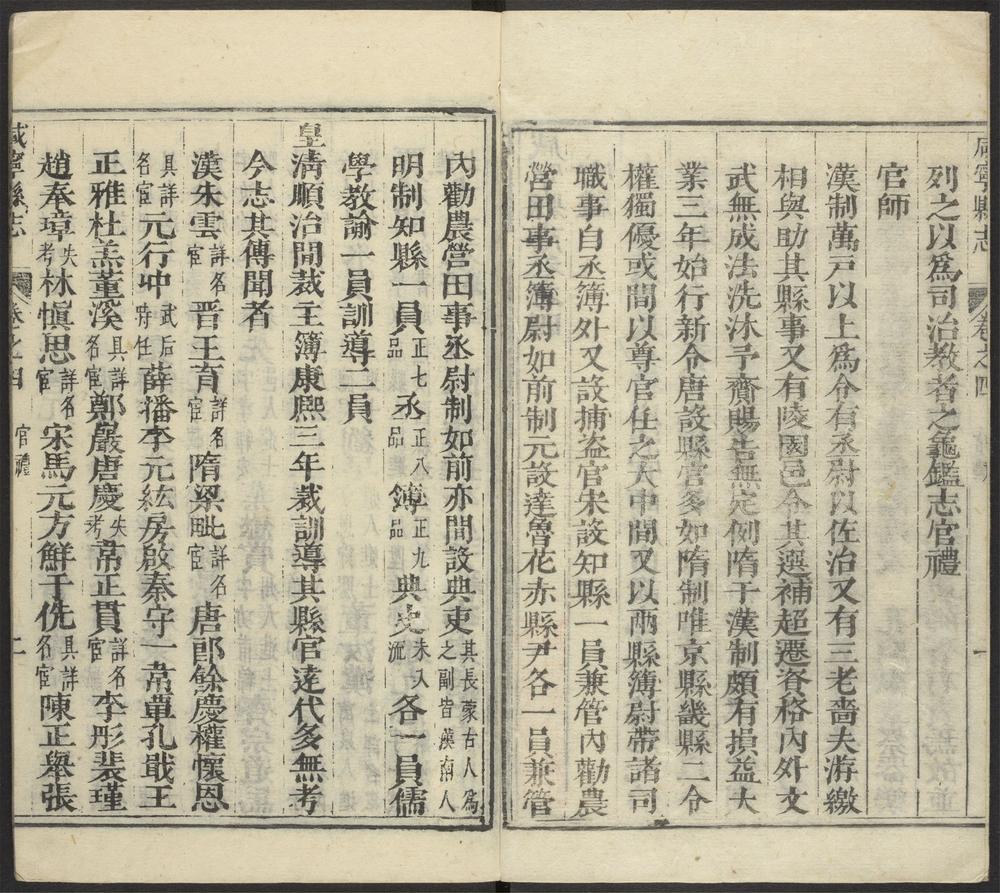 咸寧縣志
卷之四
一
列之以爲司治教者之龜鑑志官禮
官師
漢制萬戸以上爲令有丞尉以佐治又有三老嗇夫游繳
相與助其縣事又有陵國邑令其選補超遷資格內外文
武無成法洗沐予賚賜告無定例隋于漢制頗有損益大
業三年始行新令唐設縣官多如隋制唯京縣畿縣二令
權獨優或間以尊官任之大中間又以兩縣簿尉帶諸司
職事自丞簿外又設捕盗官宋設知縣一員兼管內勸農
營田事丞簿尉如前制元設達魯花赤縣尹各一員兼管
內勸農營田事丞尉制如前亦間設典吏其長蒙古人爲之副皆漢南人
明制知縣一員正七品丞正八品簿正九品典史未入流各一員儒
學教諭一員訓導二員
皇清順治間裁主簿康熙三年裁訓導其縣官達代多無考
今志其傳聞者
漢朱雲詳名宦晋王育詳名宦隋梁毗詳名宦唐郎餘慶權懷恩
具詳名宦元行冲武后時任薛播李元紘房啟秦守一常萆孔戢王
正雅杜羔董溪具詳名宦鄭嚴唐慶失考常正貫詳名宦李彤裴瑾
趙奉璋失考林愼思詳名宦宋馬元方鮮于侁具詳名宦陳正舉張
咸寧縣志
卷之四
官禮
二